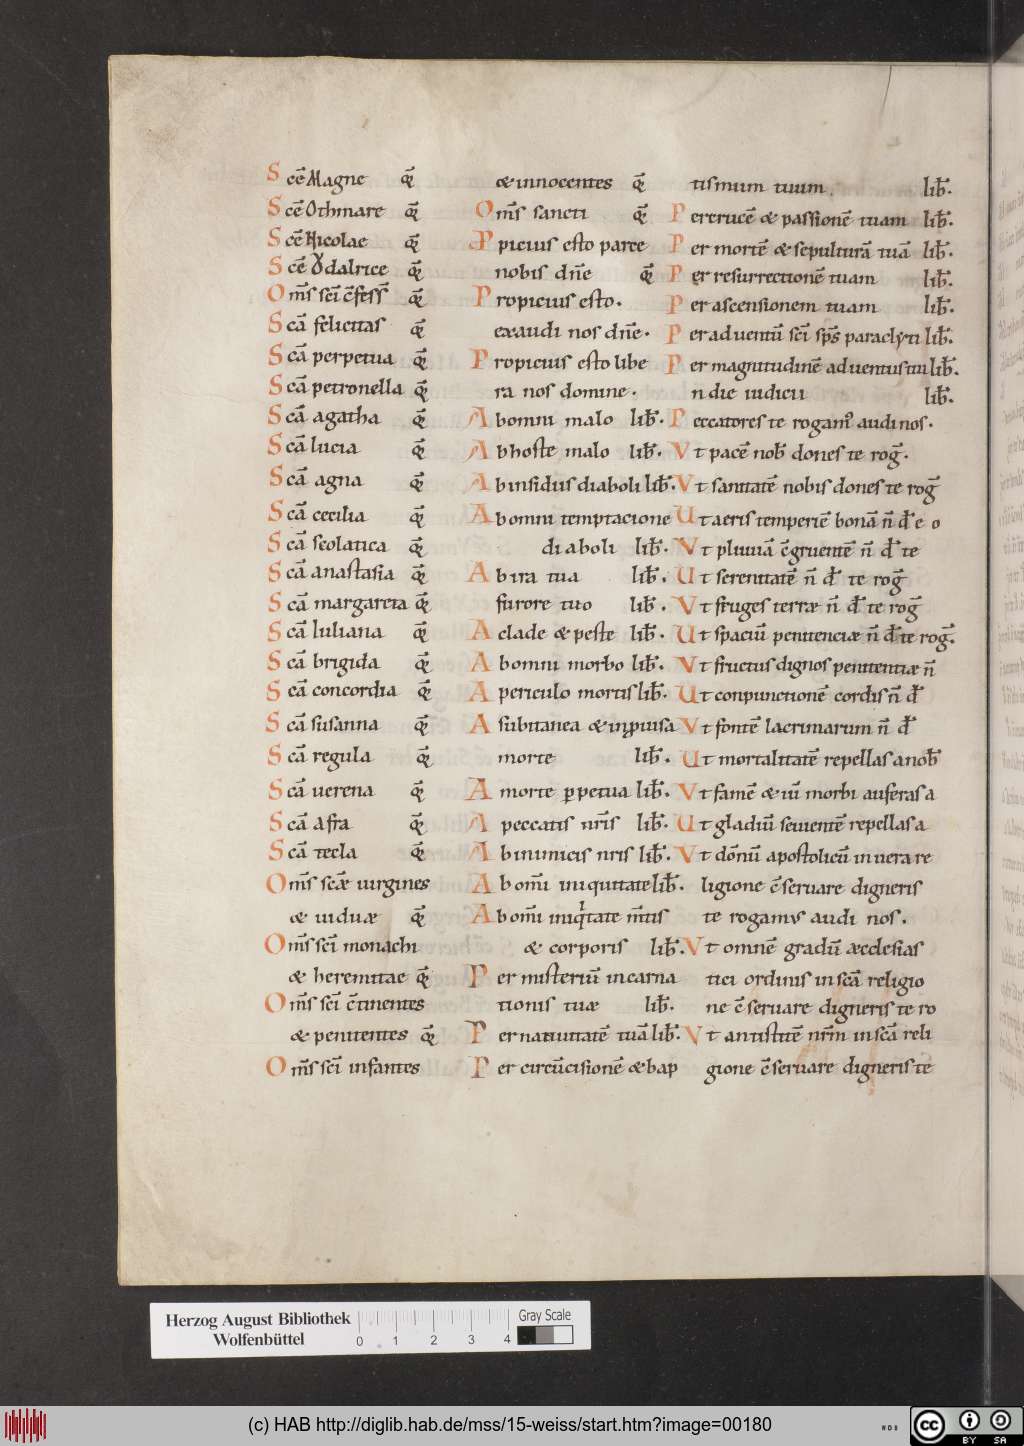 Scē Magne q̄
Scē Othmare q̄
Scē Nicolae q̄
Scē Ǒdalrice q̄
Om̄s sc̄i c̄fess̄ q̄
Scā felicitas q̄
Scā perpetua q̄
Scā petronella q̄
Scā agatha q̄
Scā lucia q̄
Scā agna q̄
Scā cecilia q̄
Scā scolatica q̄
Scā anastasia q̄
Scā margareta q̄
Scā Iuliana q̄
Scā brigida q̄
Scā concordia q̄
Scā susanna q̄
Scā regula q̄
Scā uerena q̄
Scā Afra q̄
Scā tecla q̄
Om̄s scǣ uirgines
& uiduæ q̄
Om̄s sc̄i monachi
& heremitae q̄
Om̄s sc̄i c̄tinentes
& penitentes q̄
Om̄s sc̄i infantes
& innocentes q̄
Om̄s sancti q̄
Ppicius esto parce
nobis dn̄e q̄
Propicius esto.
exaudi nos dn̄e.
Propicius esto libe
ra nos domine.
Abomni malo lib̄.
Abhoste malo lib̄.
Abinsidiis diaboli lib̄.
Abomni temptacione
diaboli lib̄.
Abira tua lib̄.
furore tuo lib̄.
Aclade & peste lib̄.
Abomni morbo lib̄.
Apericulo mortis lib̄.
Asubitanea & inpuisa
morte lib̄.
Amorte ꝑpetua lib̄.
Apeccatis nr̄is lib̄.
Abinimicis nris lib̄.
Abom̄i iniquitate lib̄.
Abom̄i iniq̇tate m̄tis
& corporis lib̄.
Per misteriū incarna
tionis tuæ lib̄.
Per natiuitatē tuā lib̄.
Per circūcisionē & bap
tismum tuum. lib̄.
Per crucē & passionē tuam lib̄.
Per mortē & sepulturā tuā lib̄.
Per resurrectionē tuam lib̄.
Per ascensionem tuam lib̄.
Per aduentū sc̄i sp̄s paraclyti lib̄.
Per magnitudinē aduentus tui lib̄.
n die iudicii lib̄.
Peccatores te rogamꝰ audi nos.
Vt pacē nob̄ dones te roḡ.
Vt sanitatē nobis dones te roḡ
Vt aeris temperiē bonā n̄ đ e o
Vt pluuiā c̄gruentē n̄ đ te
Vt serenitatē n̄ đ te roḡ
Vt fruges terræ n̄ đ te roḡ
Vt spaciū penitenciæ n̄ đ te roḡ.
Vt fructus dignos penitentiæ n̄
Vt conpunctionē cordis n̄ đ
Vt fontē lacrimarum n̄ đ
Vt mortalitatē repellas a nob̄
Vt famē & iū morbi auferas a
Vt gladiū seuientē repellas a
Vt dōnū apostolicū in uera re
ligione c̄seruare digneris
te rogamus audi nos.
Vt omnē gradū æcclesias
tici ordinis in scā religio
ne c̄seruare digneris te ro
Vt antistitē nr̄m in scā reli
gione c̄seruare digneris te
Herzog August Bibliothek
Wolfenbüttel
0 1 2 3 4
Gray Scale
(c) HAB http://diglib.hab.de/mss/15-weiss/start.htm?image=00180
cc BY SA